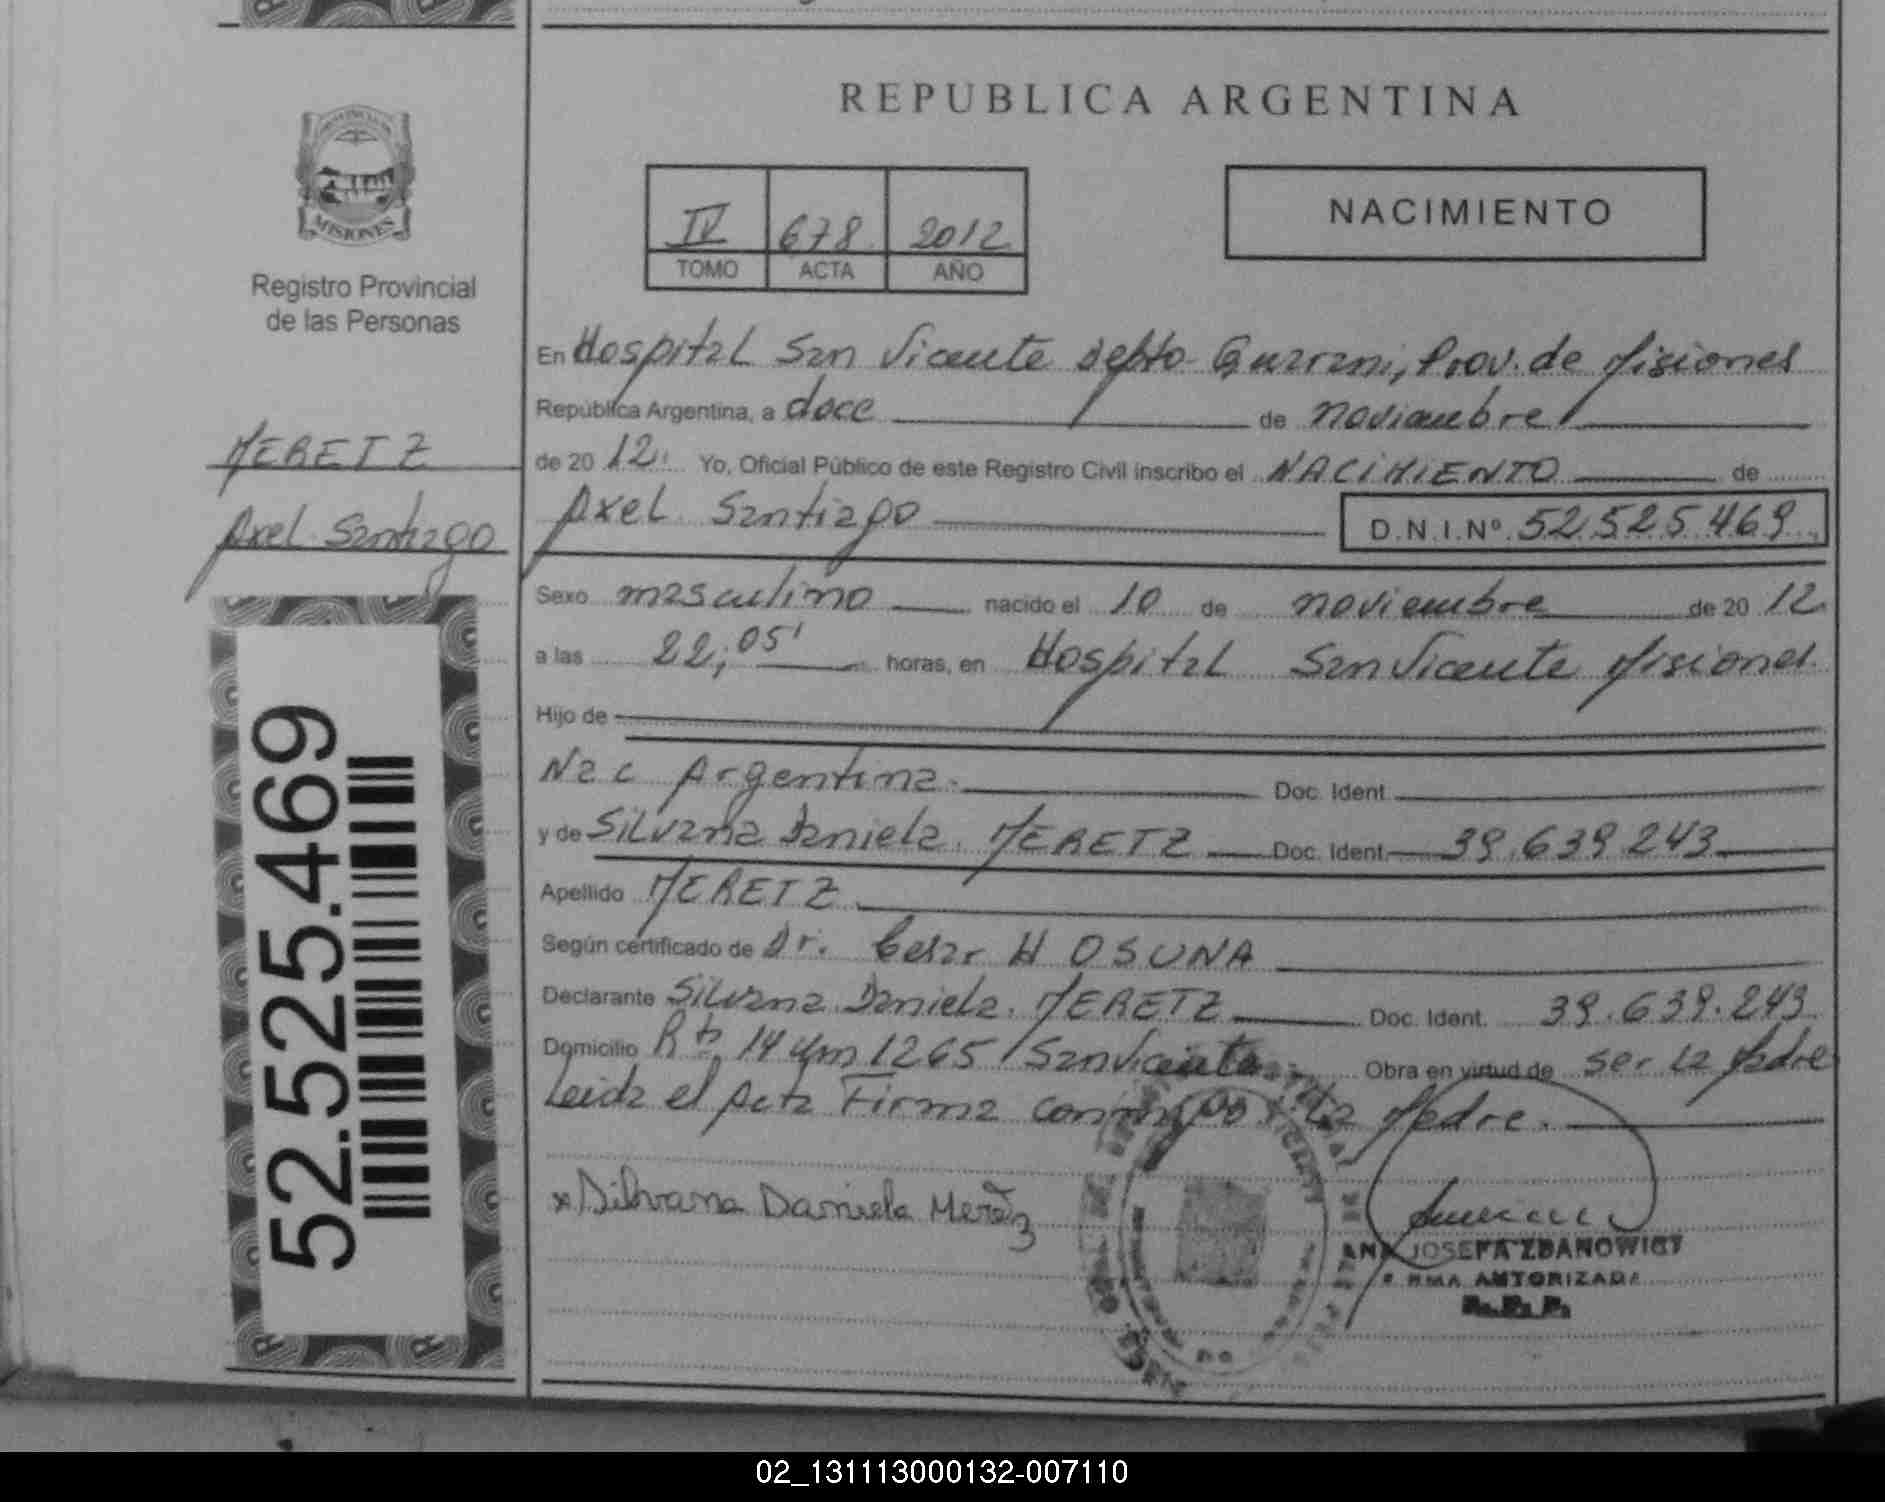 REPUBLICA ARGENTINA
PROVINCIA DE
MISIONES
Registro Provincial
de las Personas
IV 678 2012
TOMO ACTA AÑO
NACIMIENTO
MERETZ
Axel Santiago
52.525.469
En Hospital San Vicente depto Guarani, Prov. de Misiones
República Argentina, a doce de noviembre
de 2012. Yo, Oficial Público de este Registro Civil inscribo el NACIMIENTO de
Axel Santiago D.N.I.Nº 52.525.469
Sexo masculino nacido el 10 de noviembre de 2012
a las 22,05' horas, en Hospital San Vicente Misiones.
Hijo de
Nac Argentina. Doc. Ident.
y de Silvana Daniela. MERETZ Doc. Ident. 39.639.243
Apellido MERETZ
Según certificado de Dr. Cesar H OSUNA
Declarante Silvana Daniela. MERETZ Doc. Ident. 39.639.243
Domicilio Rta 14 Km 1265 San Vicente Obra en virtud de ser la Madre
Leida el Acta Firma conmigo La Madre.
x Silvana Daniela Meretz
ANA JOSEFA ZDANOWICZ
FIRMA AUTORIZADA
R.P.P.
02_131113000132-007110